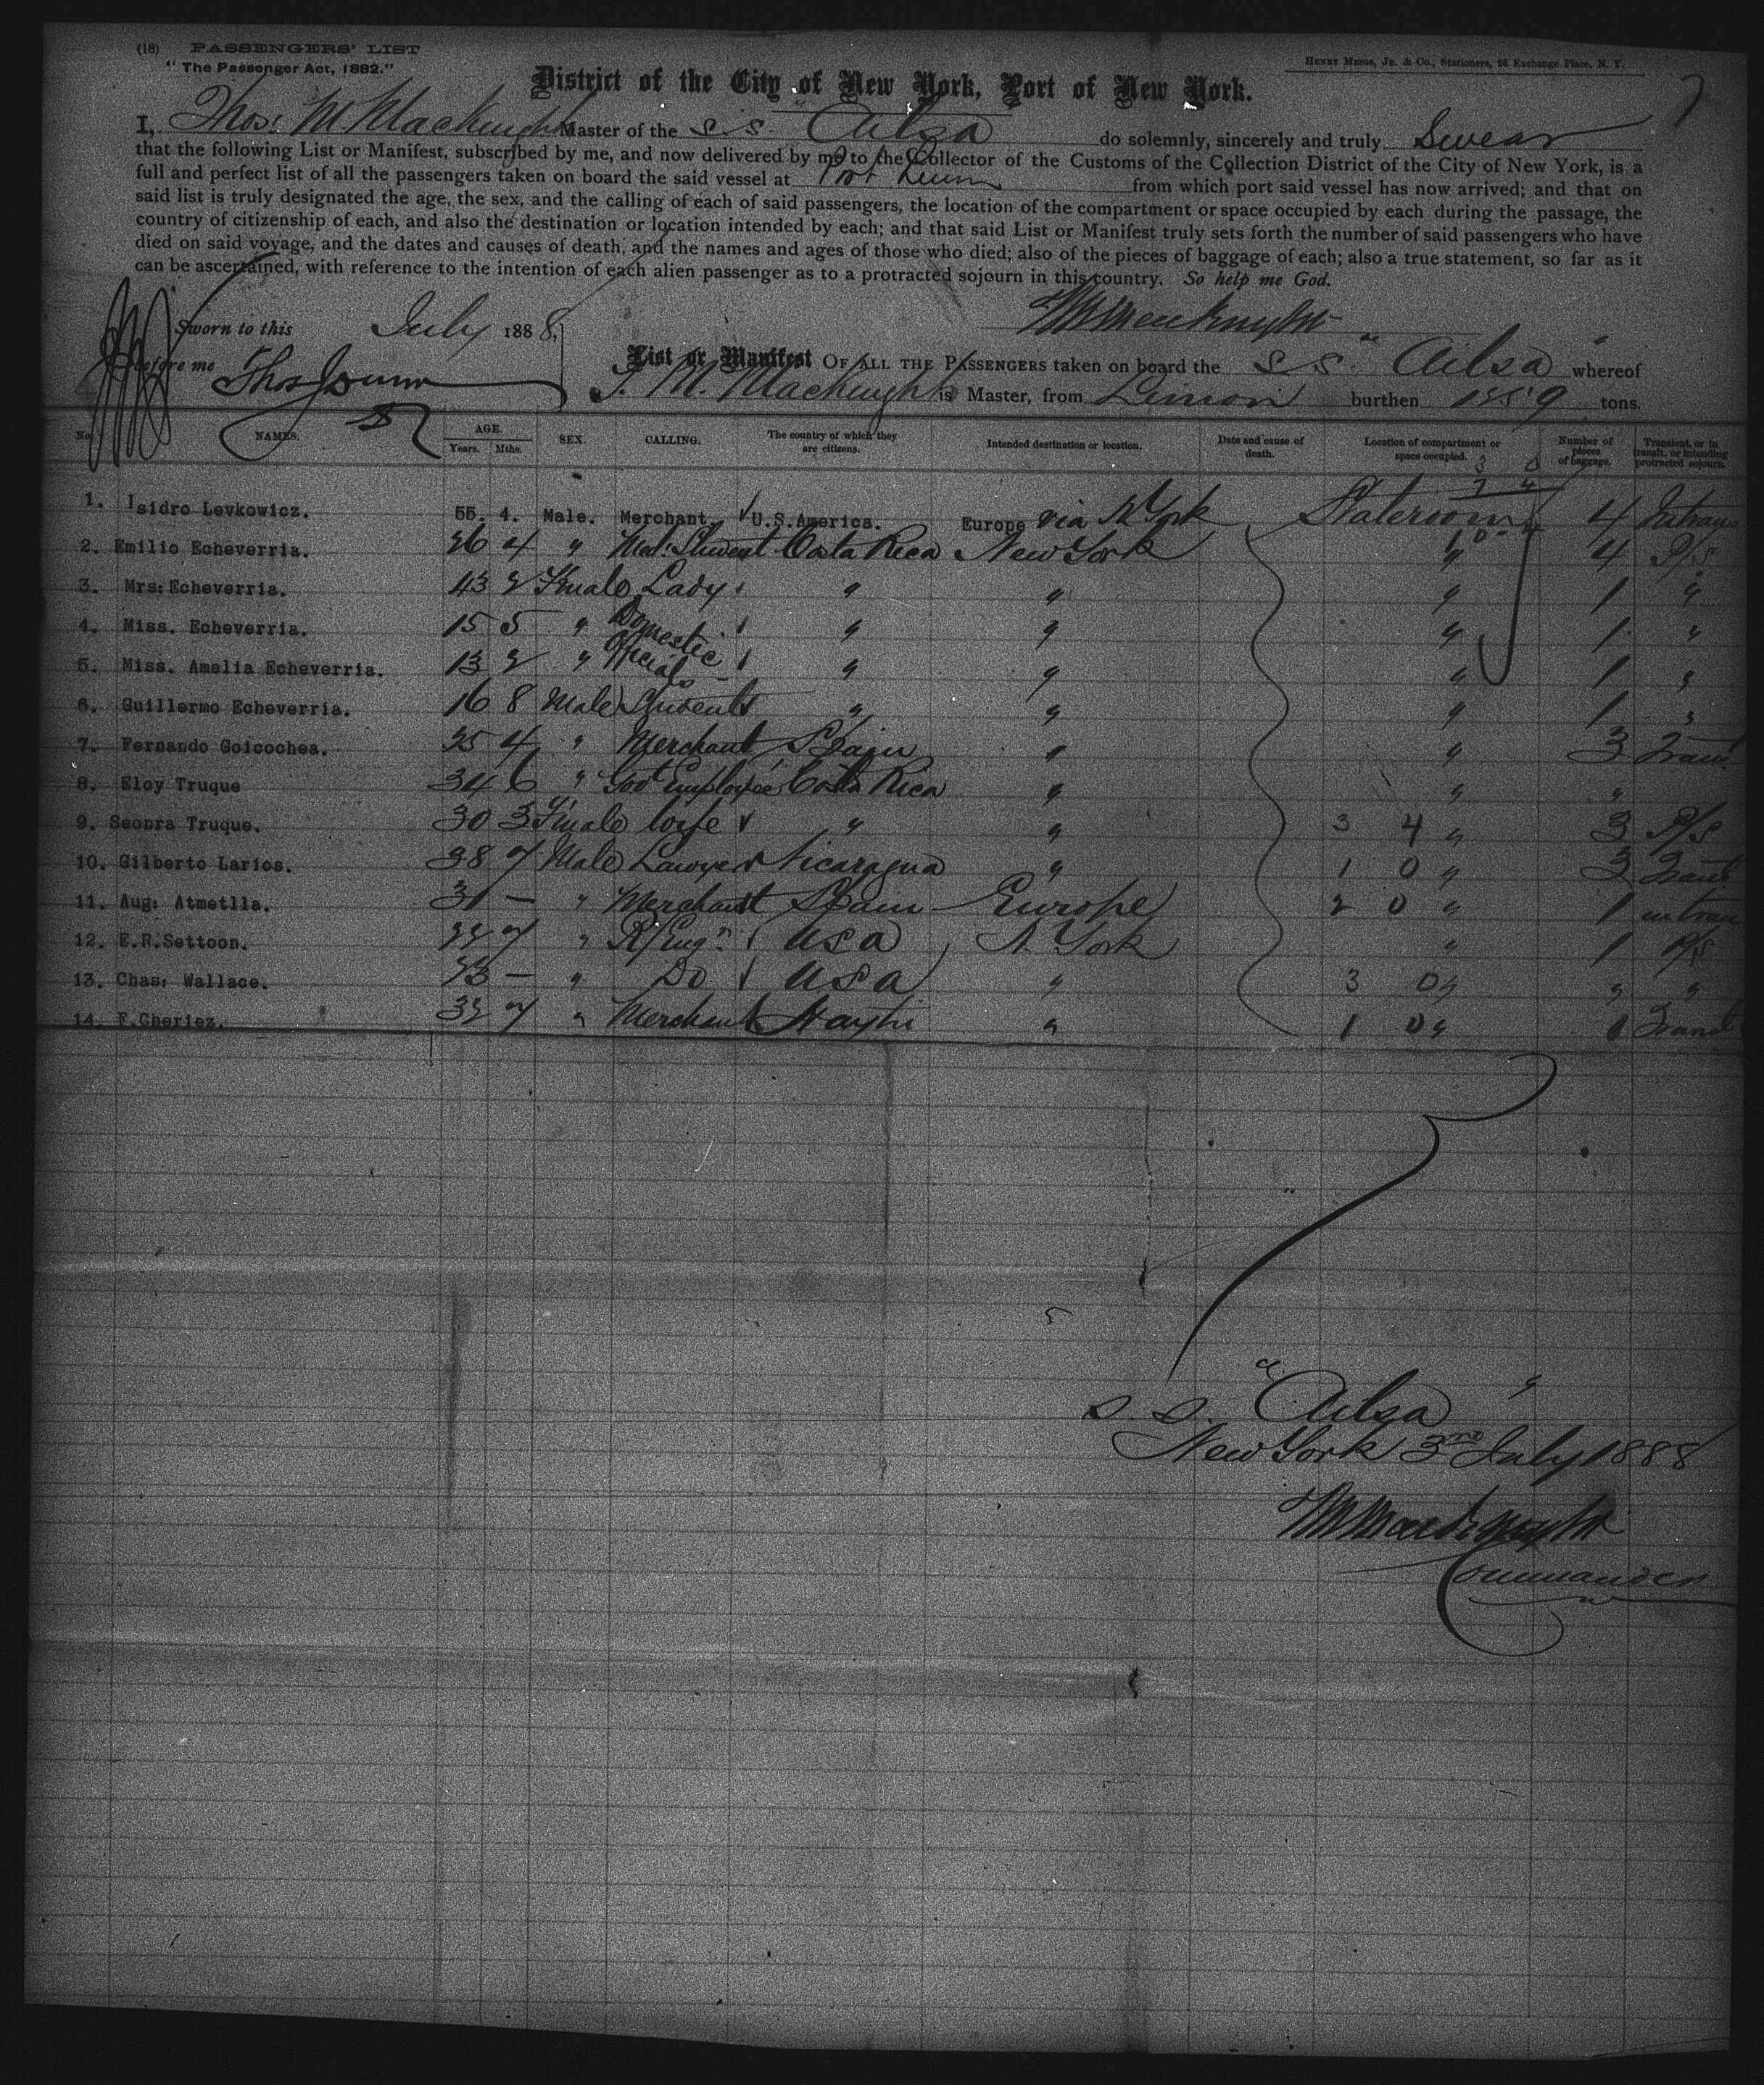 (18) PASSENGERS' LIST
"The Passenger Act, 1882."
HENRY MEIGS, JR. & CO., Stationers, 26 Exchange Place, N. Y.
District of the City of New York, Port of New York.
I, Thos: M. Macknight Master of the S.S. "Ailsa do solemnly, sincerely and truly Swear
that the following List or Manifest, subscribed by me, and now delivered by me to the Collector of the Customs of the Collection District of the City of New York, is a
full and perfect list of all the passengers taken on board the said vessel at Port Limon from which port said vessel has now arrived; and that on
said list is truly designated the age, the sex, and the calling of each of said passengers, the location of the compartment or space occupied by each during the passage, the
country of citizenship of each, and also the destination or location intended by each; and that said List or Manifest truly sets forth the number of said passengers who have
died on said voyage, and the dates and causes of death, and the names and ages of those who died; also of the pieces of baggage of each; also a true statement, so far as it
can be ascertained, with reference to the intention of each alien passenger as to a protracted sojourn in this country. So help me God.
Sworn to this July 1888,
before me
List or Manifest OF ALL THE PASSENGERS taken on board the S.S. "Ailsa" whereof
T. M. Macknight is Master, from Limon burthen tons.
No. NAMES. AGE. Years. Mths. SEX. CALLING. The country of which they are citizens. Intended destination or location. Date and cause of death. Location of compartment or space occupied. Number of pieces of baggage. Transient, or in transit, or intending protracted sojourn.
1. Isidro Levkowicz. 55. 4. Male. Merchant. U.S.America. Europe via N York Stateroom 4 Intrans
2. Emilio Echeverria. 26 4 " Med: Student Costa Rica New York " 4 P/S
3. Mrs: Echeverria. 43 2 Female Lady " " " 1 "
4. Miss. Echeverria. 15 5 " Domestic " " " 1 "
5. Miss. Amelia Echeverria. 13 2 " Officials " " " 1 "
6. Guillermo Echeverria. 16 8 Male Student " " " 1 "
7. Fernando Goicochea. 25 4 " Merchant Spain " " 3 Trans
8. Eloy Truque 34 6 " Govt Employée Costa Rica " " "
9. Seonra Truque. 30 3 Female Wife " " 3 4 " 3 P/S
10. Gilberto Larios. 38 7 Male Lawyer Nicaragua " 1 0 " 3 Trans
11. Aug: Atmetlla. 31 — " Merchant Spain Europe 2 0 " 1 in tran
12. E.R.Settoon. 22 7 " R/Engr USA N. York " 1 P/S
13. Chas: Wallace. 23 — " Do USA " 3 0 " " "
14. F.Cheriez. 32 7 " Merchant Hayti " 1 0 " 1 Trans
S.S. "Ailsa"
New York 3rd July 1888
Commander